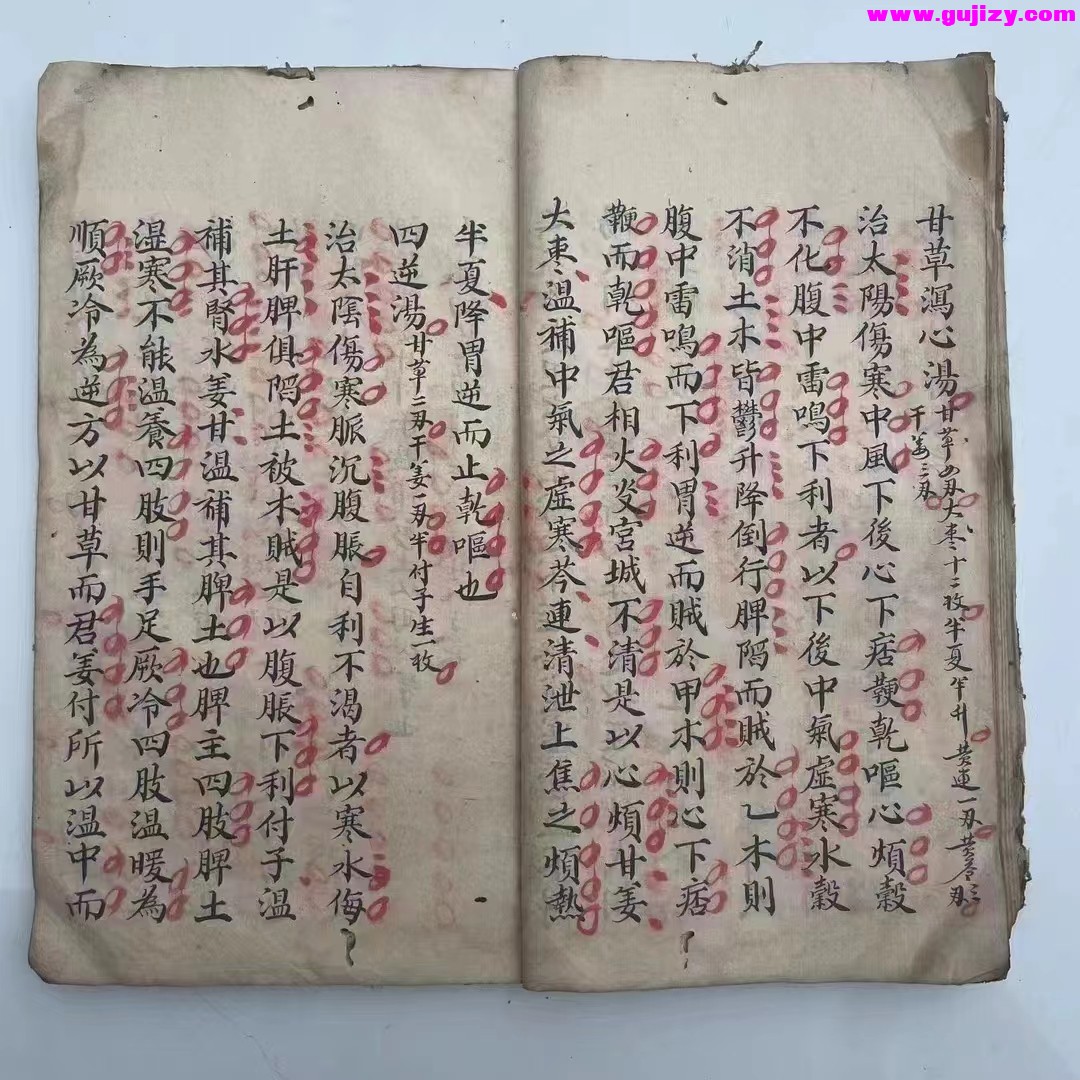 www.gujizy.com
甘草瀉心湯甘草四刄大枣十二枚半夏半升黄連一刄黄芩三刄
干姜三刄
治太陽傷寒中風下後心下痞鞕乾嘔心煩穀
不化腹中雷鳴下利者以下後中氣虛寒水穀
不消土木皆鬱升降倒行脾陷而賊於乙木則
腹中雷鳴而下利胃逆而賊於甲木則心下痞
鞕而乾嘔君相火炎宮城不清是以心煩甘姜
大棗溫補中氣之虛寒芩連清泄上焦之煩熱
半夏降胃逆而止乾嘔也
四逆湯甘草二刄干姜一刄半付子生一枚
治太陰傷寒脈沉腹脹自利不渴者以寒水侮
土肝脾俱陷土被木賊是以腹脹下利付子溫
補其腎水姜甘溫補其脾土也脾主四肢脾土
濕寒不能溫養四肢則手足厥冷四肢溫暖為
順厥冷為逆方以甘草而君姜付所以溫中而